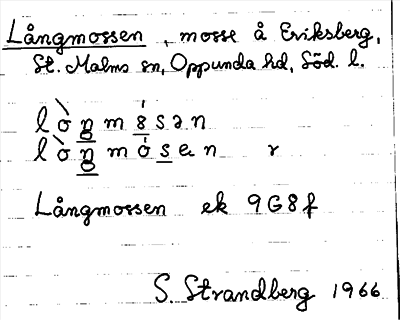 Långmossen, mosse å Eriksberg,
St. Malms sn, Oppunda hd, Söd. l.
lòŋmósən
lòŋmósen r
Långmossen ek 9G8f
S. Strandberg 1966